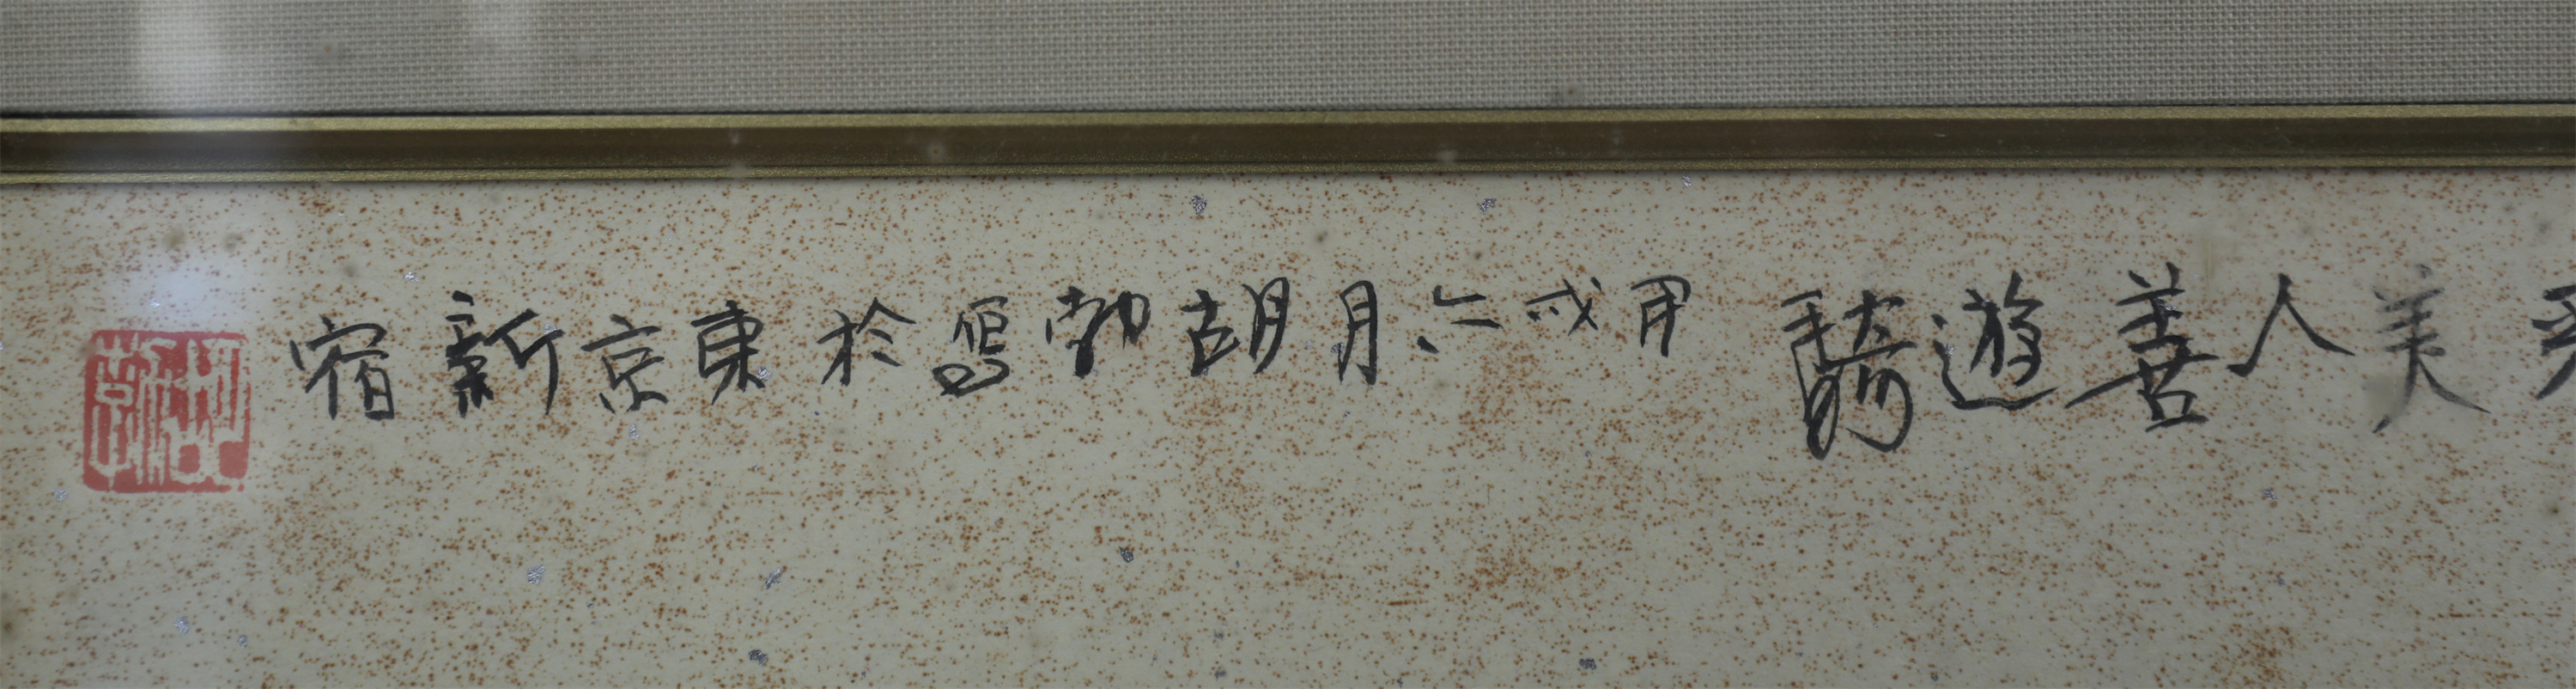 美人善遊騎 甲戌六月胡勃寫於東京新宿